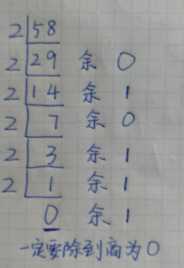 2 58
2 29 余 0
2 14 余 1
2 7 余 0
2 3 余 1
2 1 余 1
0 余 1
一定要除到商为0